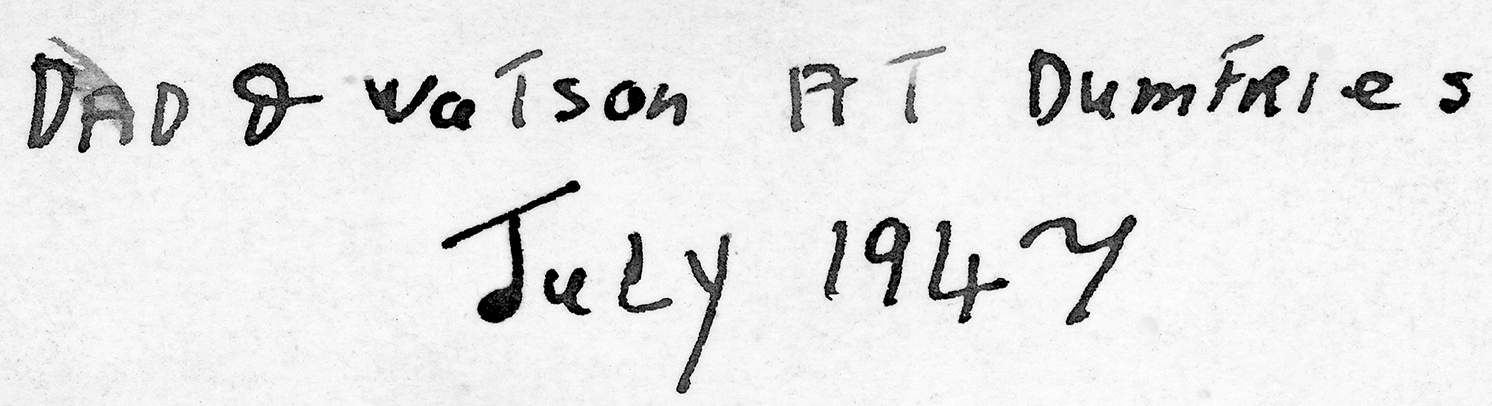 DAD & WaTson AT DumFRIes
JuLy 1947